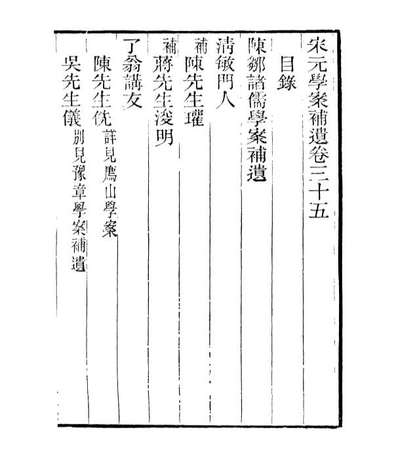 宋元學案補遺卷三十五
目錄
陳鄒諸儒學案補遺
清敏門人
補陳先生瓘
補蔣先生浚明
了翁講友
陳先生侁詳見廌山學案
吳先生儀別見豫章學案補遺